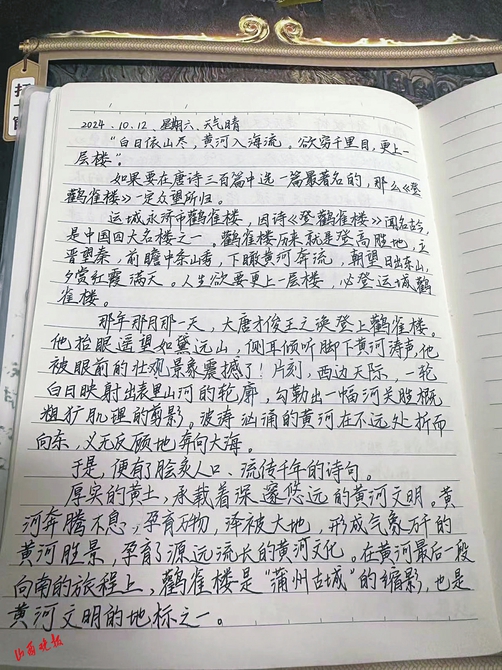 2024.10.12 星期六 天气晴
"白日依山尽,黄河入海流。欲穷千里目,更上一
层楼"。
如果要在唐诗三百篇中选一篇最著名的,那么《登
鹳雀楼》一定众望所归。
运城永济市鹳雀楼,因诗《登鹳雀楼》闻名古今,
是中国四大名楼之一。鹳雀楼历来就是登高胜地,立
晋望秦,前瞻中条山秀,下瞰黄河奔流,朝望日出东山,
夕赏红霞满天。人生欲要更上一层楼,必登运城鹳
雀楼。
那年那月那一天,大唐才俊王之涣登上鹳雀楼。
他抬眼遥望如黛远山,侧耳倾听脚下黄河涛声,他
被眼前的壮观景象震撼了!片刻,西边天际,一轮
白日映射出表里山河的轮廓,勾勒出一幅河关胜概
粗犷肌理的剪影。波涛汹涌的黄河在不远处折而
向东,义无反顾地奔向大海。
于是,便有了脍炙人口、流传千年的诗句。
厚实的黄土,承载着深邃悠远的黄河文明。黄
河奔腾不息,孕育万物,泽被大地,形成气象万千的
黄河胜景,孕育了源远流长的黄河文化。在黄河最后一段
向南的旅程上,鹳雀楼是"蒲州古城"的缩影,也是
黄河文明的地标之一。
山西晚报